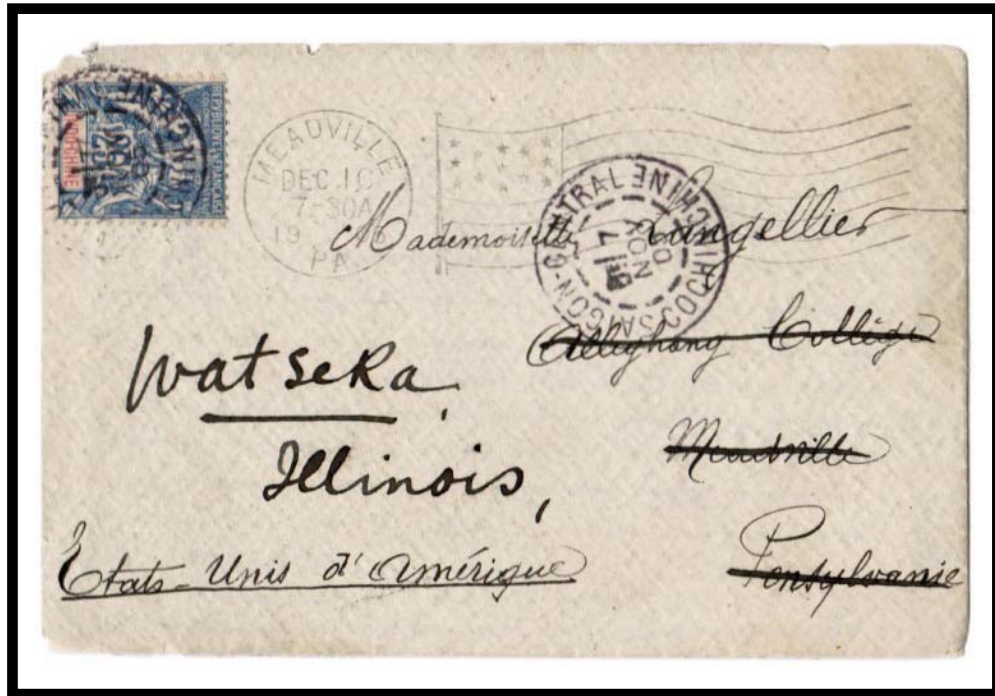 REPUBLIQUE FRANCAISE
INDO-CHINE
25
MEADVILLE
DEC. 16
7-30A
19
PA
SAIGON-CENTRAL COCHINCHINE
7
NOV
00
Mademoiselle Langellier
Alleghany Collège
Meadville
Pensylvanie
Watseka,
Illinois,
Etats-Unis d'Amérique